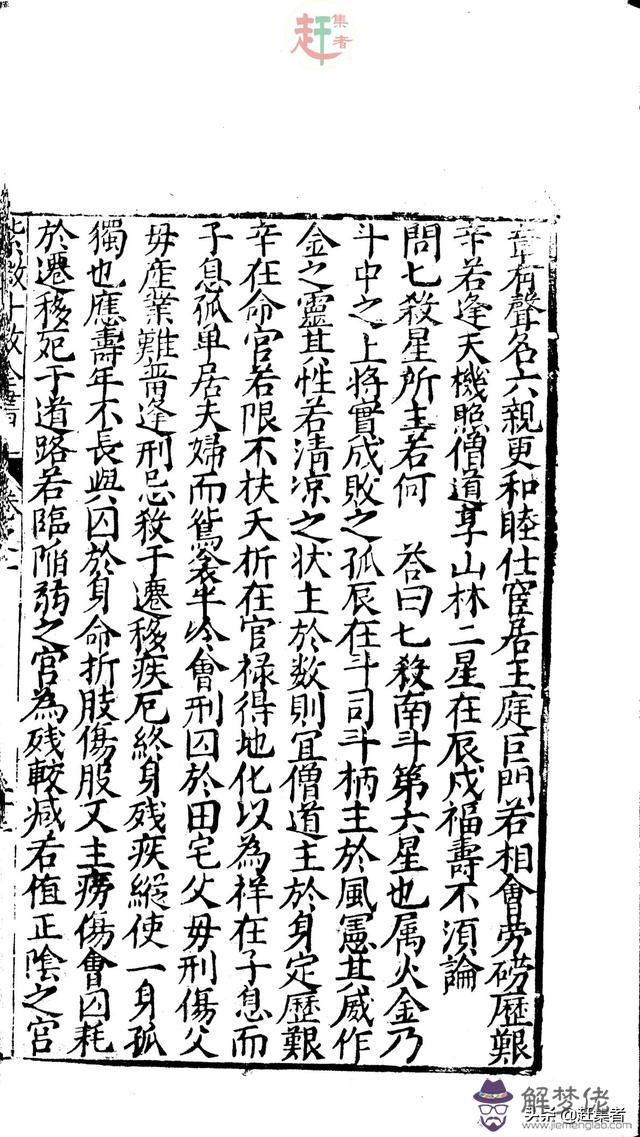 赶集者
章有聲名六親更和睦仕宦居王庭巨門若相會劳磅歷艱
辛若逢天機照僧道享山林二星在辰戌福壽不湏論
問七殺星所主若何 荅曰七殺南斗第六星也属火金乃
斗中之上將實成敗之孤辰在斗司斗柄主於風憲其威作
金之靈其性若清凉之状主於数則宜僧道主於身定歷艱
辛在命宫若限不扶夭折在官禄得地化以為祥在子息而
子息孤单居夫婦而鴛衾半冷會刑囚於田宅父毋刑傷父
毋産業難畱逢刑忌殺于遷移疾厄終身残疾縱使一身孤
獨也應壽年不長與囚於身命折肢傷股又主癆傷會囚耗
於遷移死于道路若臨陥弱之宫為残較减若值正陰之宫
解梦佬
www.jiemenglao.com
头条 @赶集者